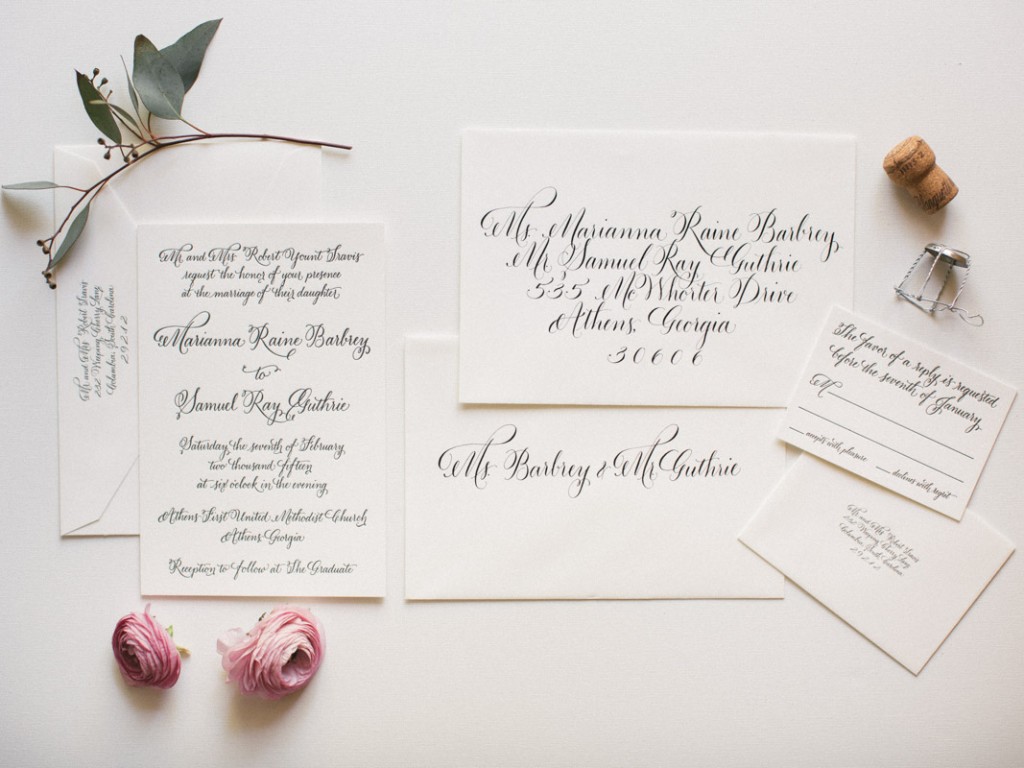 Mr. and Mrs. Robert Yount Travis
request the honor of your presence
at the marriage of their daughter
Marianna Raine Barbrey
to
Samuel Ray Guthrie
Saturday, the seventh of February
two thousand fifteen
at six o'clock in the evening
Athens First United Methodist Church
Athens, Georgia
Reception to follow at The Graduate
Mr. and Mrs. Robert Travis
Weeping Cherry Lane
Columbia, South Carolina
29212
Ms. Marianna Raine Barbrey
Mr. Samuel Ray Guthrie
535 McWhorter Drive
Athens, Georgia
30606
Ms. Barbrey & Mr. Guthrie
The favor of a reply is requested
before the seventh of January
M
accepts with pleasure
declines with regret
Mr. and Mrs. Robert Travis
Weeping Cherry Lane
Columbia, South Carolina
29212